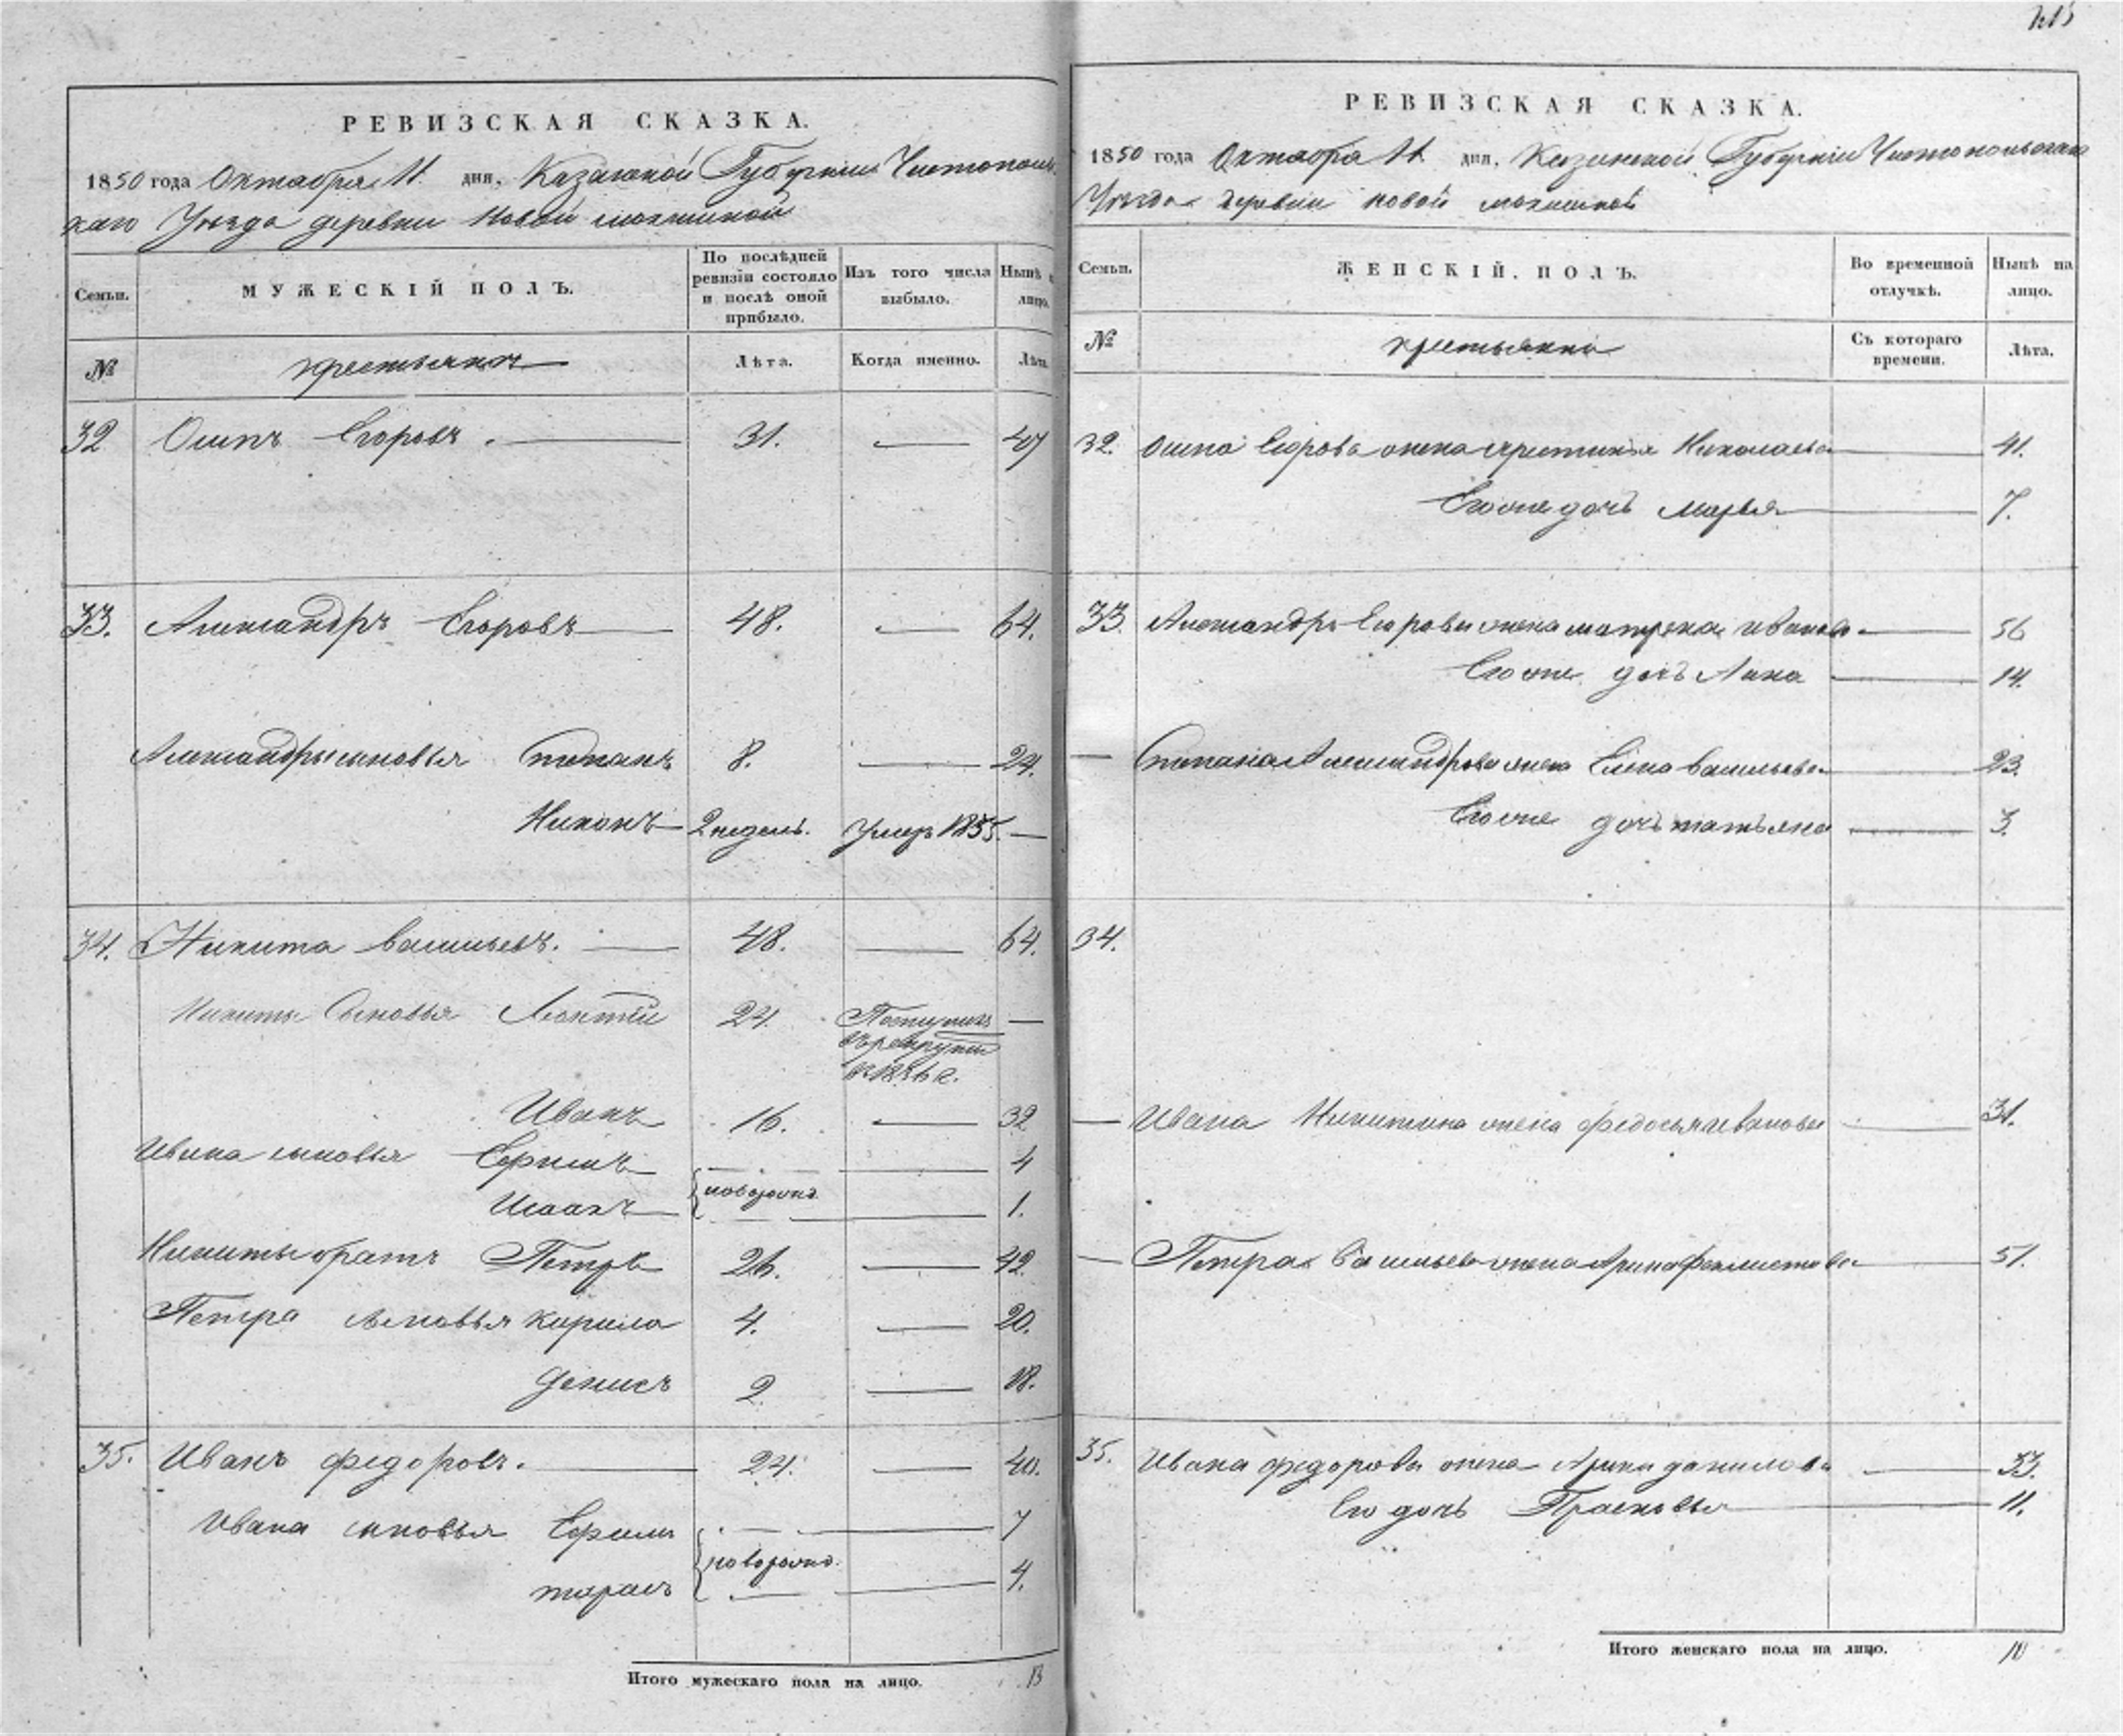 РЕВИЗСКАЯ СКАЗКА.
1850 года Октября 11. дня, Казанской Губернии Чистополь
скаго Уезда деревни Новой
Семьи.
МУЖЕСКІЙ ПОЛЪ.
По послѣдней ревизіи состояло и послѣ оной прибыло.
Изъ того числа выбыло.
Нынѣ лицо.
№
крестьяне
Лѣта.
Когда именно.
Лѣта.
32 Осипъ Егоровъ. 31. 47
33. Александръ Егоровъ 48. 64.
Александры сыновья Степанъ 8. 24.
Никонъ 2 недель. Умеръ 1835.
34. Никита Васильевъ. 48. 64.
Никиты Сыновья Леонтій 24. Поступилъ
въ рекруты
Иванъ 16. 32
Ивана сыновья 4
Исаакъ новорожд. 1.
Никиты братъ Петръ 26. 42.
Петра сыновья Кирила 4. 20.
Денисъ 2 18.
35. Иванъ Федоровъ. 24. 40.
Ивана сыновья Ефимъ 7
новорожд.
Тарасъ 4.
Итого мужескаго пола на лицо. 13
РЕВИЗСКАЯ СКАЗКА.
1850 года Октября 11. дня, Казанской Губерніи Чистопольскаго
Уезда деревни новой
Семьи.
ЖЕНСКІЙ ПОЛЪ.
Во временной отлучкѣ.
Нынѣ на лицо.
№
крестьянки
Съ котораго времени.
Лѣта.
32. Осипа Егорова жена Николаева 41.
Его же дочь Марья 7.
33. Александра Егорова жена Матрена Иванова 56
Его же дочь Анна 14.
Степана Александрова жена Елена Васильева 23.
Его же дочь Татьяна 3.
34.
Ивана Никитина жена Федосья Иванова 31.
Петра Васильева жена Арина Феклистова 51.
35. Ивана Федорова жена Арина Данилова 33.
Его дочь Прасковья 11.
Итого женскаго пола на лицо. 10